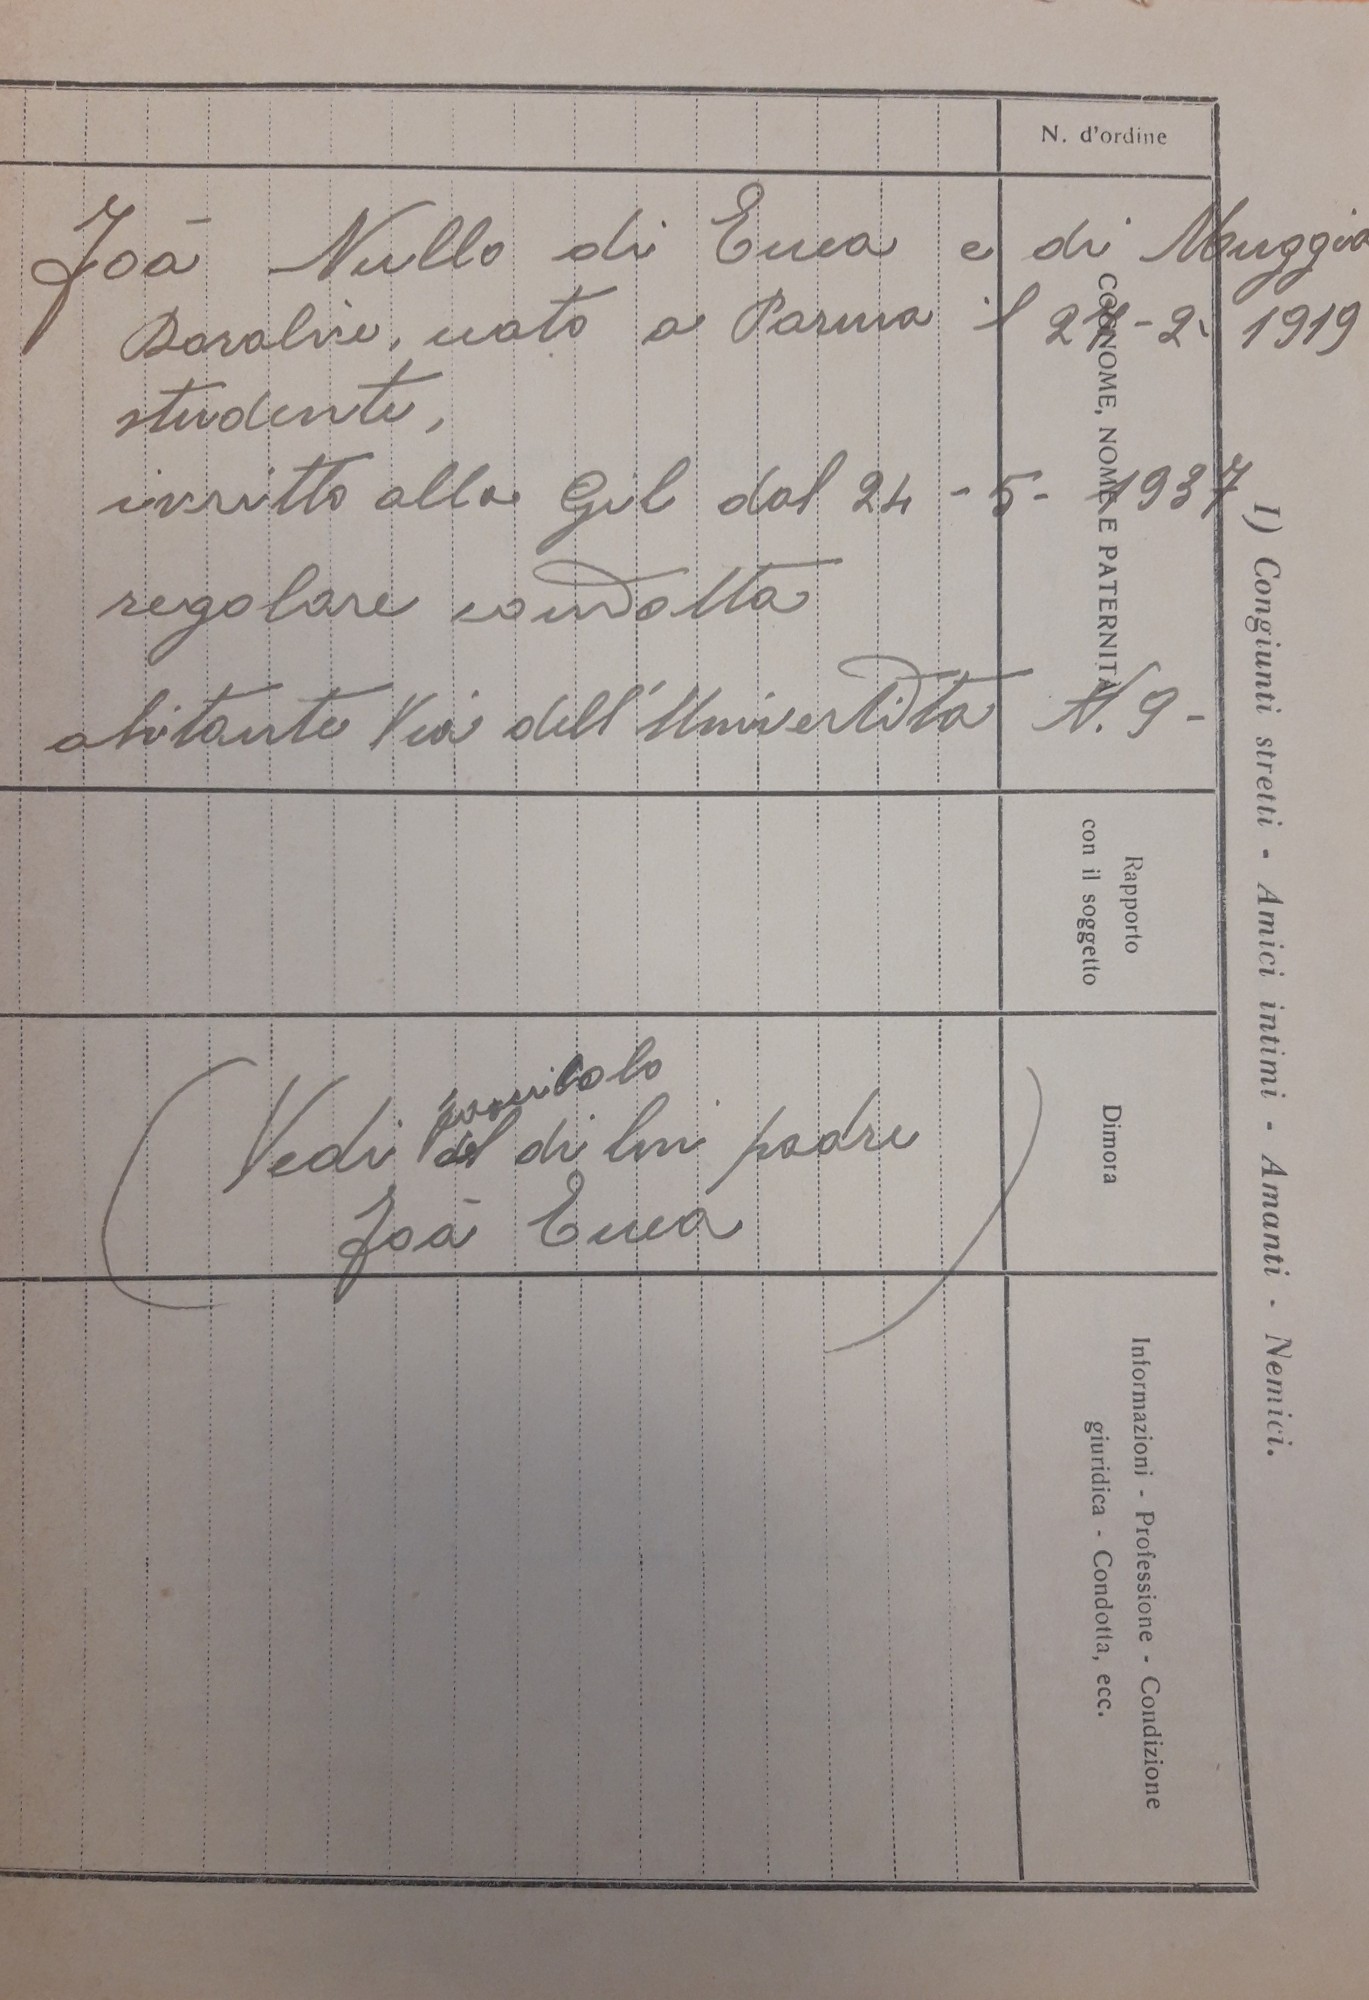 I) Congiunti stretti - Amici intimi - Amanti - Nemici.
N. d'ordine
COGNOME, NOME E PATERNITÀ
Rapporto
con il soggetto
Dimora
Informazioni - Professione - Condizione
giuridica - Condotta, ecc.
Zoā Nullo di Enea e di
nato a Parma il 2 -2- 1919
studente,
iscritto alla Gil dal 24 - 5 - 1937
regolare condotta
abitante Via dell'Università N. 9 -
fascicolo
Vedi di lui padre
Zoā Enea